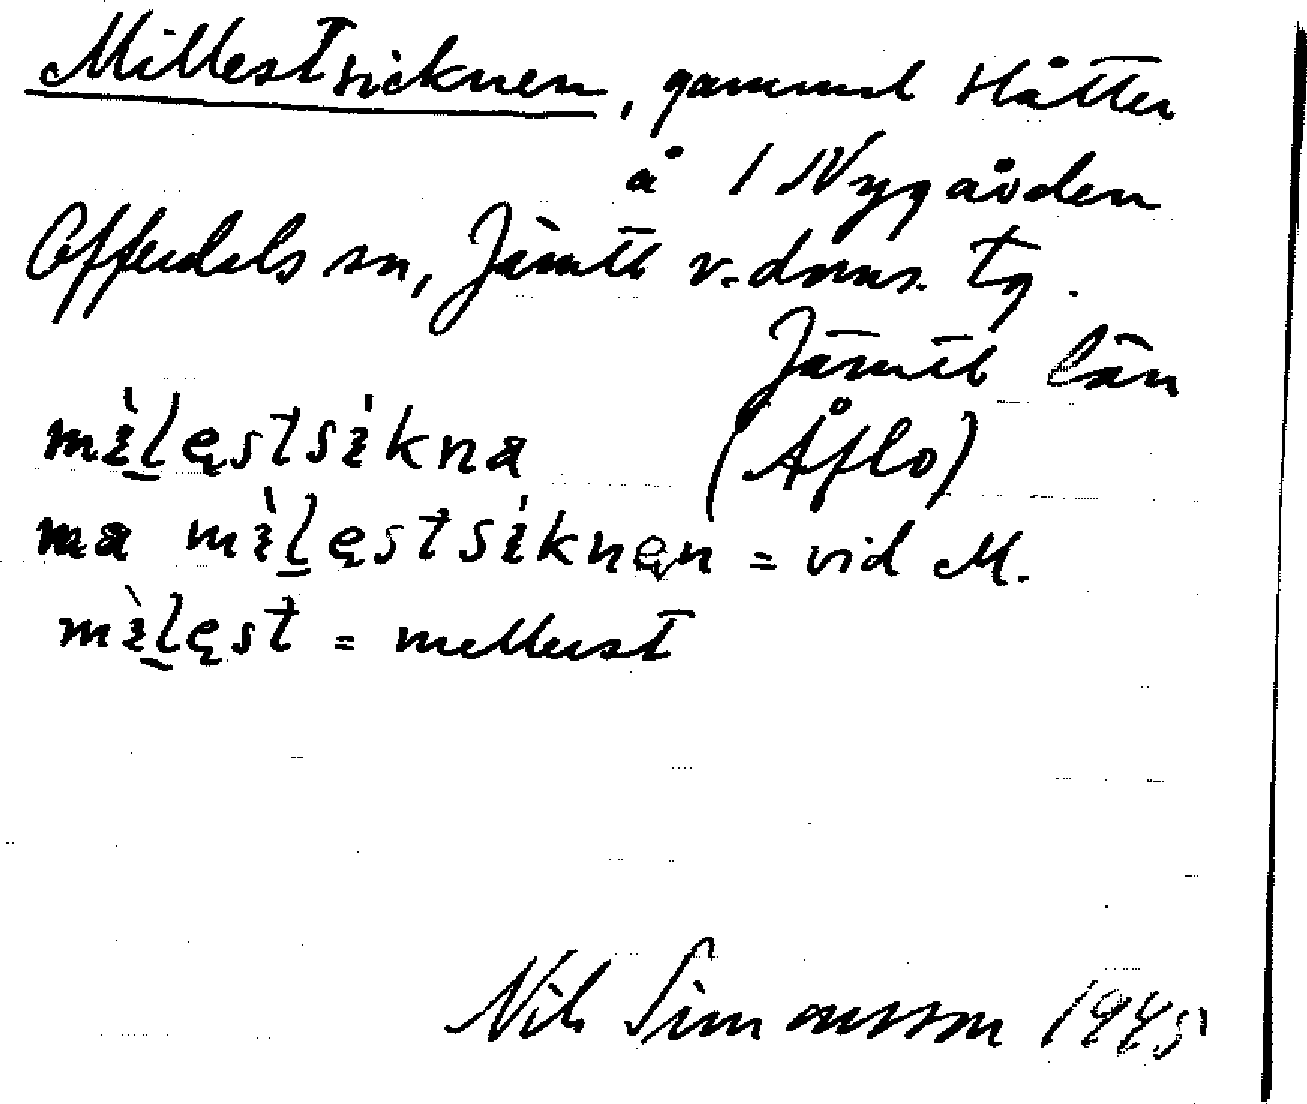 Millestsicknen, gammal slåtter
å 1 Nygården
Offerdals sn, Jämtl v. doms. tg.
Jämtl län
mìlęstsìkna (Åflo)
ma mìlęstsìknęn = vid M.
mìlęst = mellerst
Nils Simonsson 1945